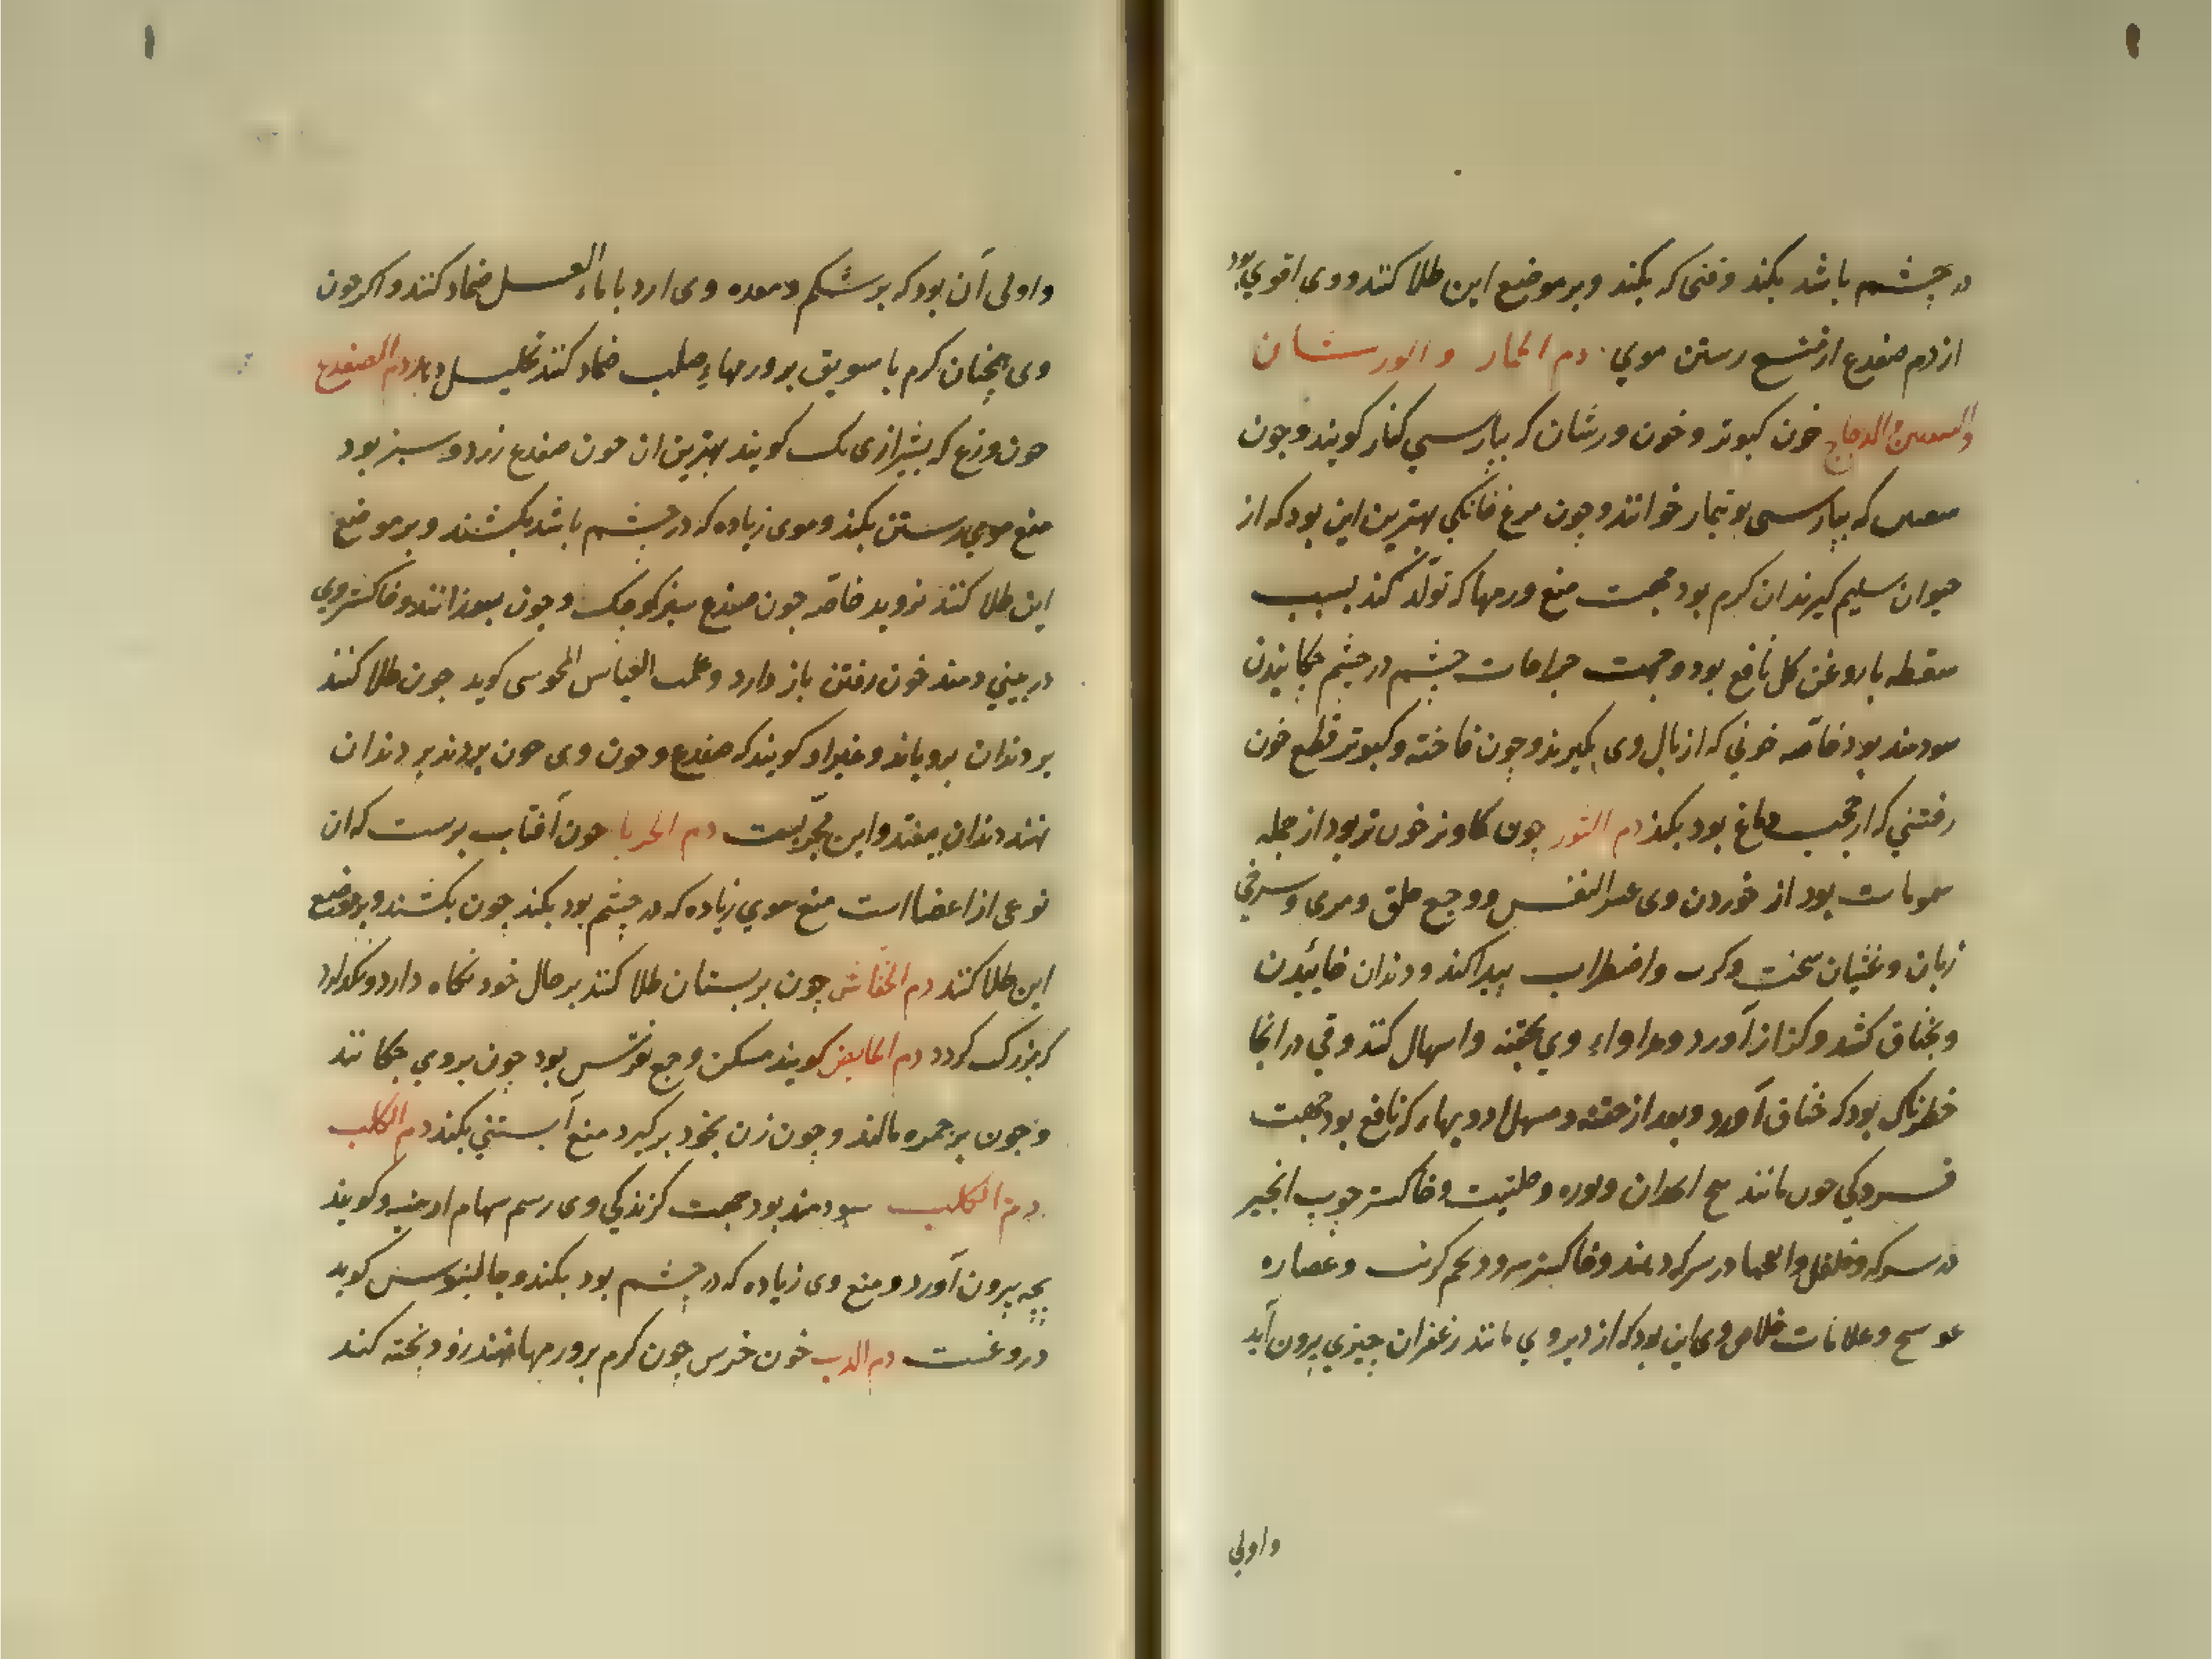 در چشم باشد بکند وقتی که بکند و بر موضع این طلا کنند و وی اقوی بود
از دم ضفدع از منع رستن موی دم الحمار والورشان
والدجاج خون کبوتر و خون ورشان که بپارسی کنار کویند و چون
که بپارسی بوتیمار خوانند و چون مرغ خانکی بهترین این بود که از
حیوان سلیم کیرند ان کرم بود جهت منع ورمها که تولد کند بسبب
سقطه با روغن کل نافع بود و جهت جراحات چشم در چشم چکانیدن
سودمند بود خاصه خونی که از بال وی بکیرند و چون فاخته و کبوتر قطع خون
رفتنی که از حجب دماغ بود بکند دم الثور چون کاو نر خون تر بود از جمله
سمومات بود از خوردن وی عسر النفس و وجع حلق و مری و سرخی
زبان و غثیان سخت و کرب و اضطراب پیدا کند و دندان خائیدن
و بخناق کشد و کزاز آورد و مداواء وی بحقنه و اسهال کنند و قی در انجا
خطرناک بود که خناق آورد و بعد از حقنه و مسهل ادویهاء که نافع بود جهت
فسردکی خون مانند و بوره و حلتیت و خاکستر چوب انجیر
در سرکه و فلفل و در سرکه و خاکستر و تخم کرنب و عصاره
عوسج و علامات خلاص وی این بود که از دبر وی مانند زعفران چیزی بیرون آید
واولی
واولی آن بود که بر شکم و معده وی ارد با ماء العسل ضماد کنند و اکر خون
وی همچنان کرم با سویق بر ورمهاء صلب ضماد کنند تحلیل دهد دم الضفدع
خون وزغ که بشیرازی بک کویند بهترین ان خون ضفدع زرد و سبز بود
منع موی رستن بکند و موی زیاده که در چشم باشد بکشند و بر موضع
این طلا کنند نروید خاصه خون ضفدع سبز کوچک و چون بسوزانند و خاکستر وی
در بینی دمند خون رفتن باز دارد و علی العباس المجوسی کوید چون طلا کنند
بر دندان برویاند و غیر او کویند که ضفدع و خون وی چون بر دندان
نهند دندان بیفتد و این مجربست دم الحربا خون آفتاب پرست که ان
نوعی از اعضا است منع موی زیاده که در چشم بود بکند چون بکشند و بر موضع
این طلا کنند دم الخفاش چون بر پستان طلا کنند بر حال خود نکاه دارد و نکذارد
که بزرک کردد دم الحایض کویند مسکن وجع نقرس بود چون بر وی چکانند
و چون بر حمره مالند و چون زن بخود برکیرد منع آبستنی بکند دم الکلب
دم الکلب سودمند بود جهت کزندکی وی و سم سهام ارمنیه و کویند
بچه بیرون آورد و منع وی زیاده که در چشم بود بکند و جالینوس کوید
دروغست دم الدب خون خرس چون کرم بر ورمها نهند زود پخته کند